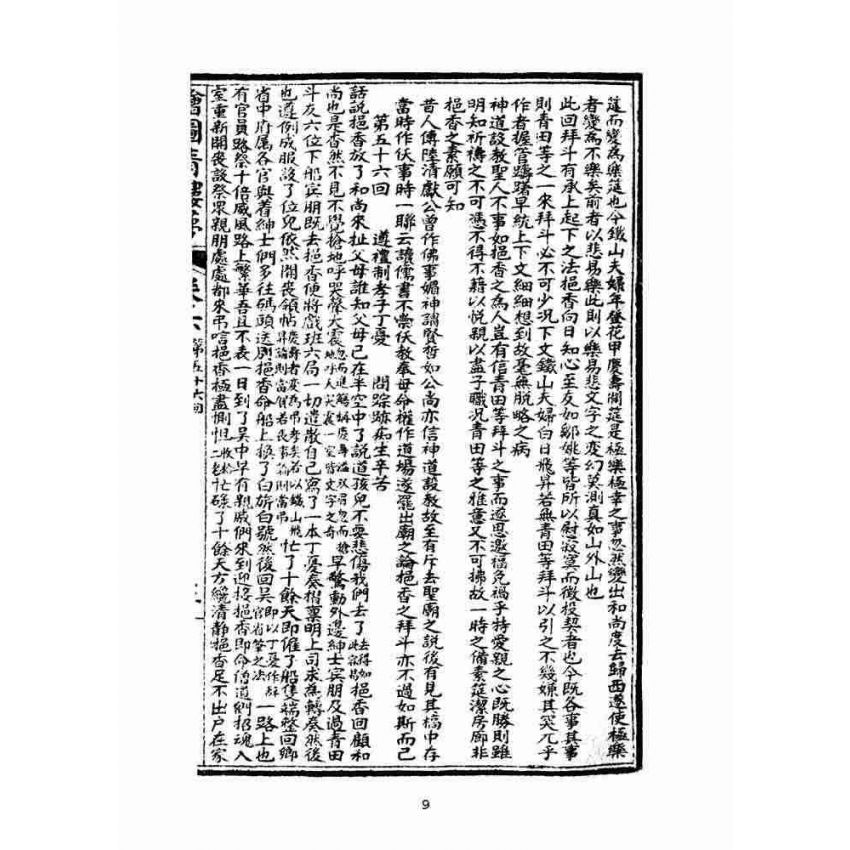 筵而變為樂筵也今鐵山夫婦年登花甲慶壽開筵是極樂極幸之事忽然變出和尚度去歸西遂使極樂
者變為不樂矣前者以悲易樂此則以樂易悲文字之變幻莫測真如山外山也
此回拜斗有承上起下之法挹香向日知心至友如鄒姚等皆所以慰寂寞而徵投契者也今既各事其事
則青田等之一來拜斗必不可少況下文鐵山夫婦白日飛昇若無青田等拜斗以引之不幾嫌其突兀乎
作者握管躊躇早統上下文細細想到故毫無脫略之病
神道設教聖人不事如挹香之為人豈有信青田等拜斗之事而遂思邀福免禍乎特愛親之心既勝則雖
明知祈禱之不可憑不得不藉以悅親以盡子職況青田等之雅意又不可拂故一時之備素筵潔房廊非
挹香之素願可知
昔人傳陸清獻公曾作佛事媚神謂賢哲如公尚亦信神道設教故至有斥去聖廟之說後有見其稿中存
當時作佛事時一聯云讀儒書不崇佛教奉母命權作道場遂罷出廟之論挹香之拜斗亦不過如斯而已
第五十六回 遵禮制孝子丁憂 問踪跡痴生辛苦
話說挹香放了和尚來扯父母誰知父母已在半空中了說道孩兒不要悲傷我們去了挹香回顧和
尚也是杳然不見不覺搶地呼天哭聲大震早驚動外邊紳士賓朋及過青田
斗友六位下船賓朋既去挹香便將戲班六局一切遣散自己寫了一本丁憂奏摺稟明上司求為轉奏然後
也遵例成服設了位兒依然開喪領帖忙了十餘天即催了船隻端整回鄉
省中府屬各官與着紳士們多往碼頭送別挹香命船上換了白旂白號然後回吳一路上也
有官員路祭十倍威風路上繁華吾且不表一日到了吳中早有親戚們來到迎接挹香即命僧道們招魂入
室重新開喪設祭眾親朋處處都來弔唁挹香極盡惻怛忙碌了十餘天方纔清靜挹香足不出戶在家
繪圖青樓夢 卷六 第五十六回
9